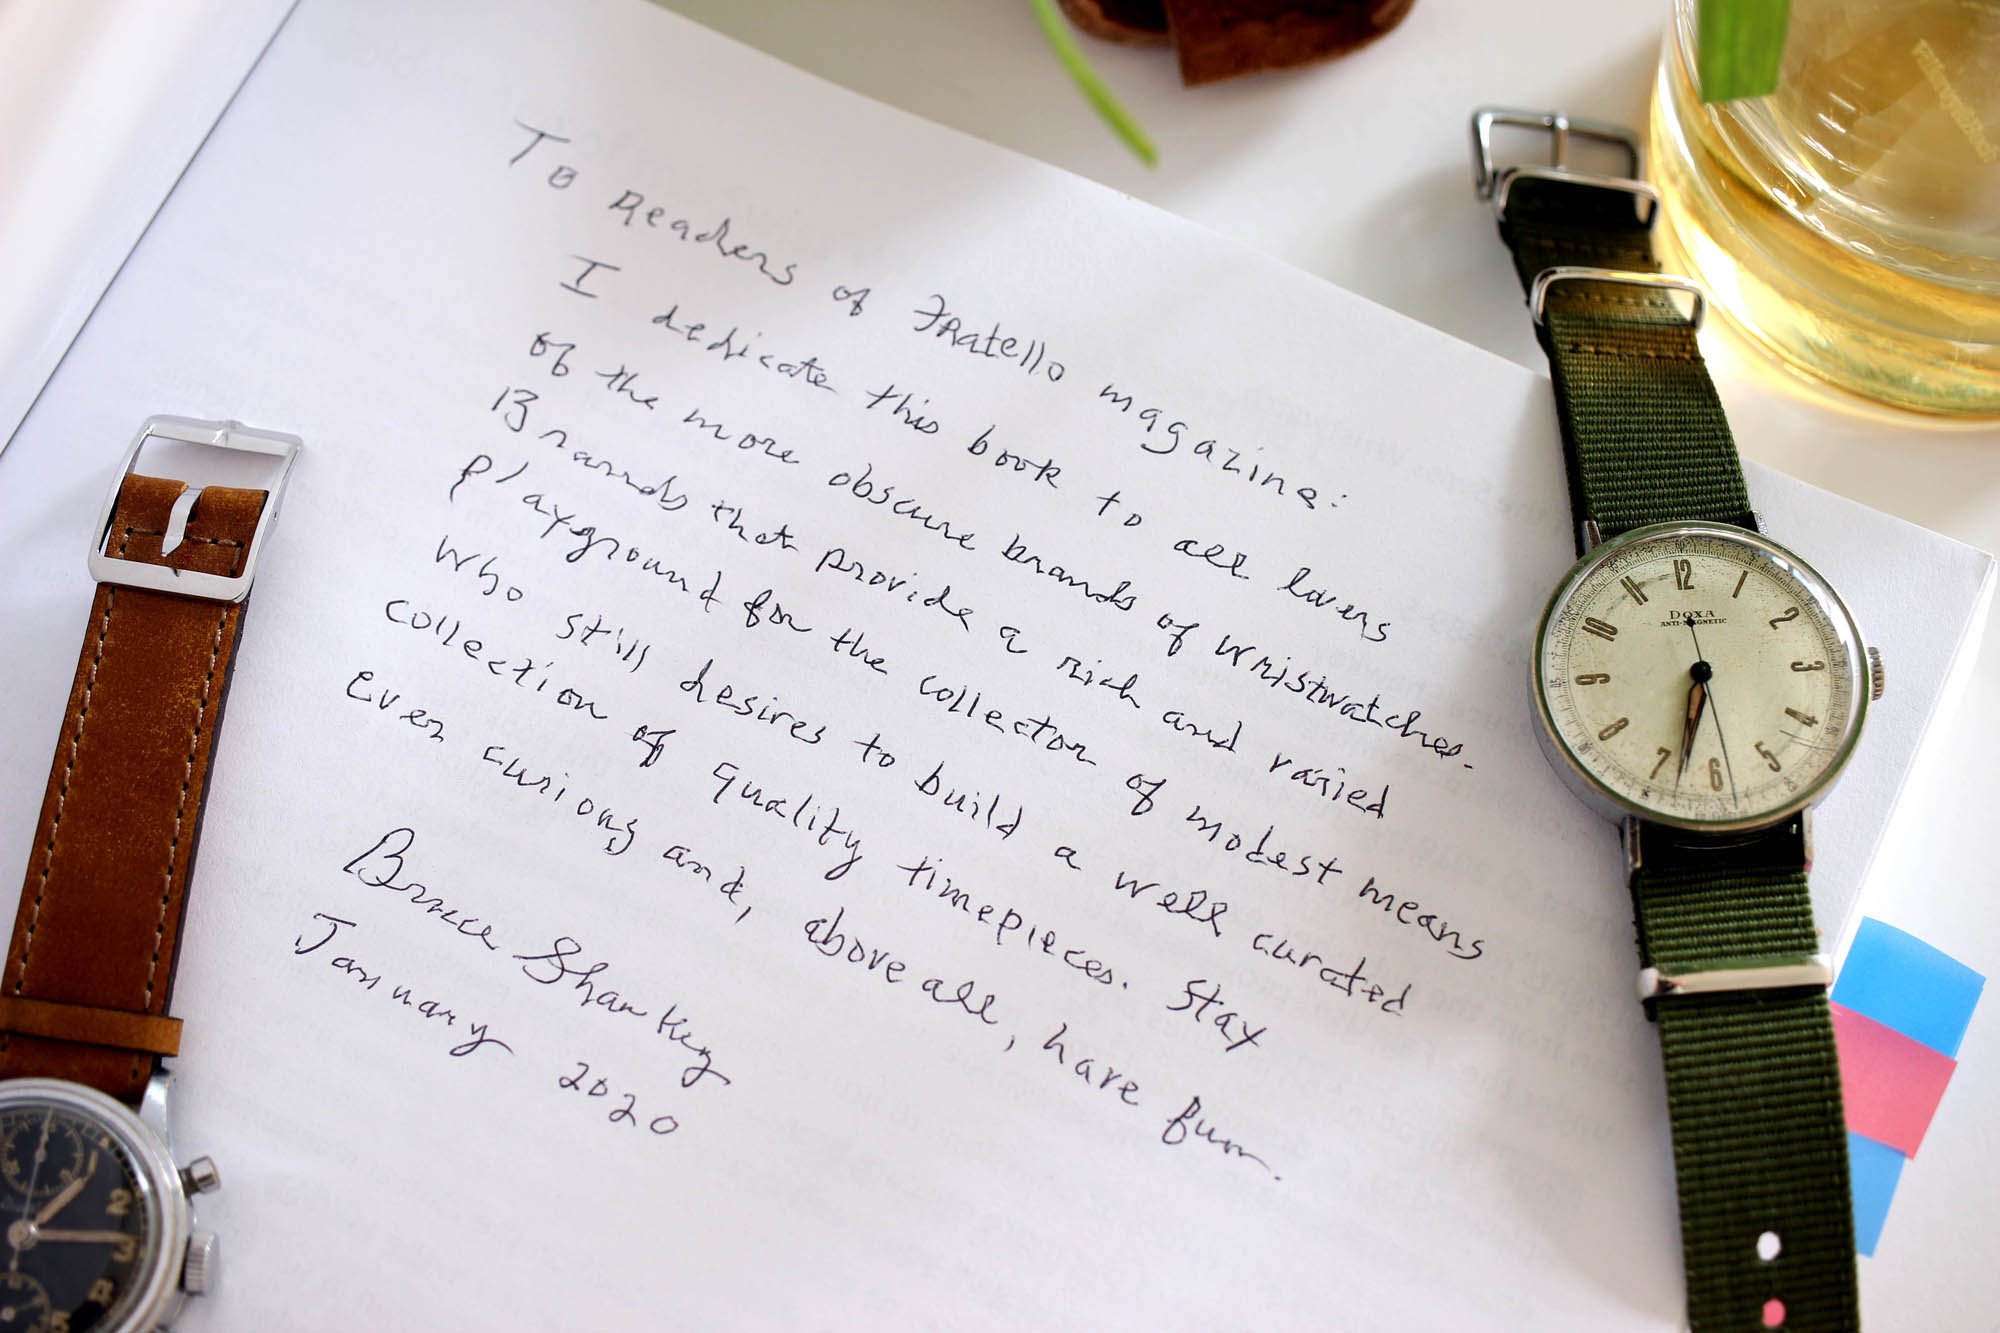 To Readers of Fratello magazine:
I dedicate this book to all lovers
of the more obscure brands of wristwatches.
Brands that provide a rich and varied
playground for the collector of modest means
who still desires to build a well curated
collection of quality timepieces. Stay
ever curious and, above all, have fun.
Bruce Shawkey
January 2020
DOXA
ANTI-MAGNETIC
12
1
2
3
4
5
6
7
8
9
10
11
2
3